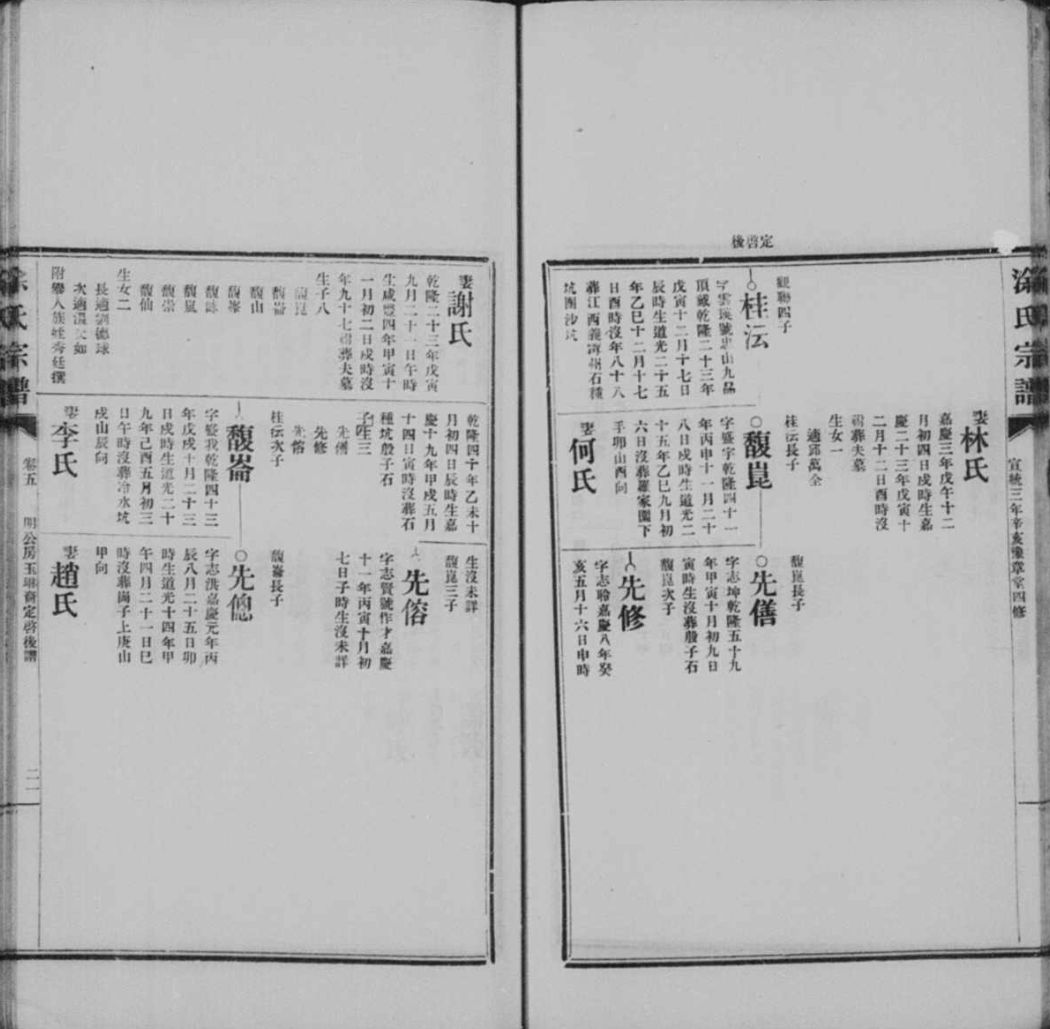 定啓後
氏宗譜
宣統三年辛亥豫章堂四修
妻林氏
嘉慶三年戊午十二
月初四日戌時生嘉
慶二十三年戊寅十
二月十二日酉時沒
祔葬夫墓
生女一
適郭萬全
觀聯四子
桂沄
字雲溪號忠山九品
頂戴乾隆二十三年
戊寅十二月十七日
辰時生道光二十五
年乙巳十二月十七
日酉時沒年八十八
葬江西義寧州石種
坑團沙坑
桂沄長子
馥崑
字盛宇乾隆四十一
年丙申十一月二十
八日戌時生道光二
十五年乙巳九月初
六日沒葬羅家園下
手卯山酉向
妻何氏
馥崑長子
先僐
字志坤乾隆五十九
年甲寅十月初九日
寅時生沒葬殷子石
馥崑次子
先修
字志聆嘉慶八年癸
亥五月十六日申時
妻謝氏
乾隆二十三年戊寅
九月二十一日午時
生咸豐四年甲寅十
一月初二日戌時沒
年九十七祔葬夫墓
生子八
馥崑
馥崙
馥山
馥峯
馥嵐
馥崇
馥仙
生女二
長適劉德球
次適
附
乾隆四十年乙未十
月初四日辰時生嘉
慶十九年甲戌五月
十四日寅時沒葬石
種坑殷子石
子生三
先僐
先修
先傛
桂沄次子
馥崙
字盛我乾隆四十三
年戊戌十月二十三
日戌時生道光二十
九年己酉五月初三
日午時沒葬冷水坑
戌山辰向
妻李氏
生沒未詳
馥崑三子
先傛
字志賢號作才嘉慶
十一年丙寅十月初
七日子時生沒未詳
馥崙長子
先
字志洪嘉慶元年丙
辰八月二十五日卯
時生道光十四年甲
午四月二十一日巳
時沒葬崗子上庚山
甲向
妻趙氏
氏宗譜
卷五
明公房玉琳裔定啓後譜
二一